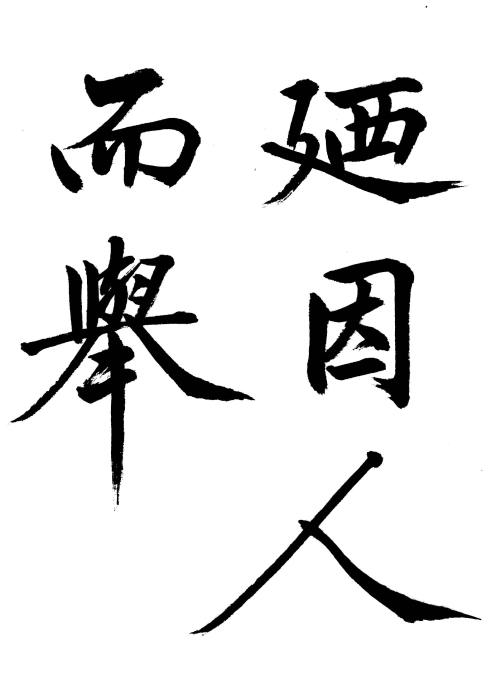 廼因人
而舉